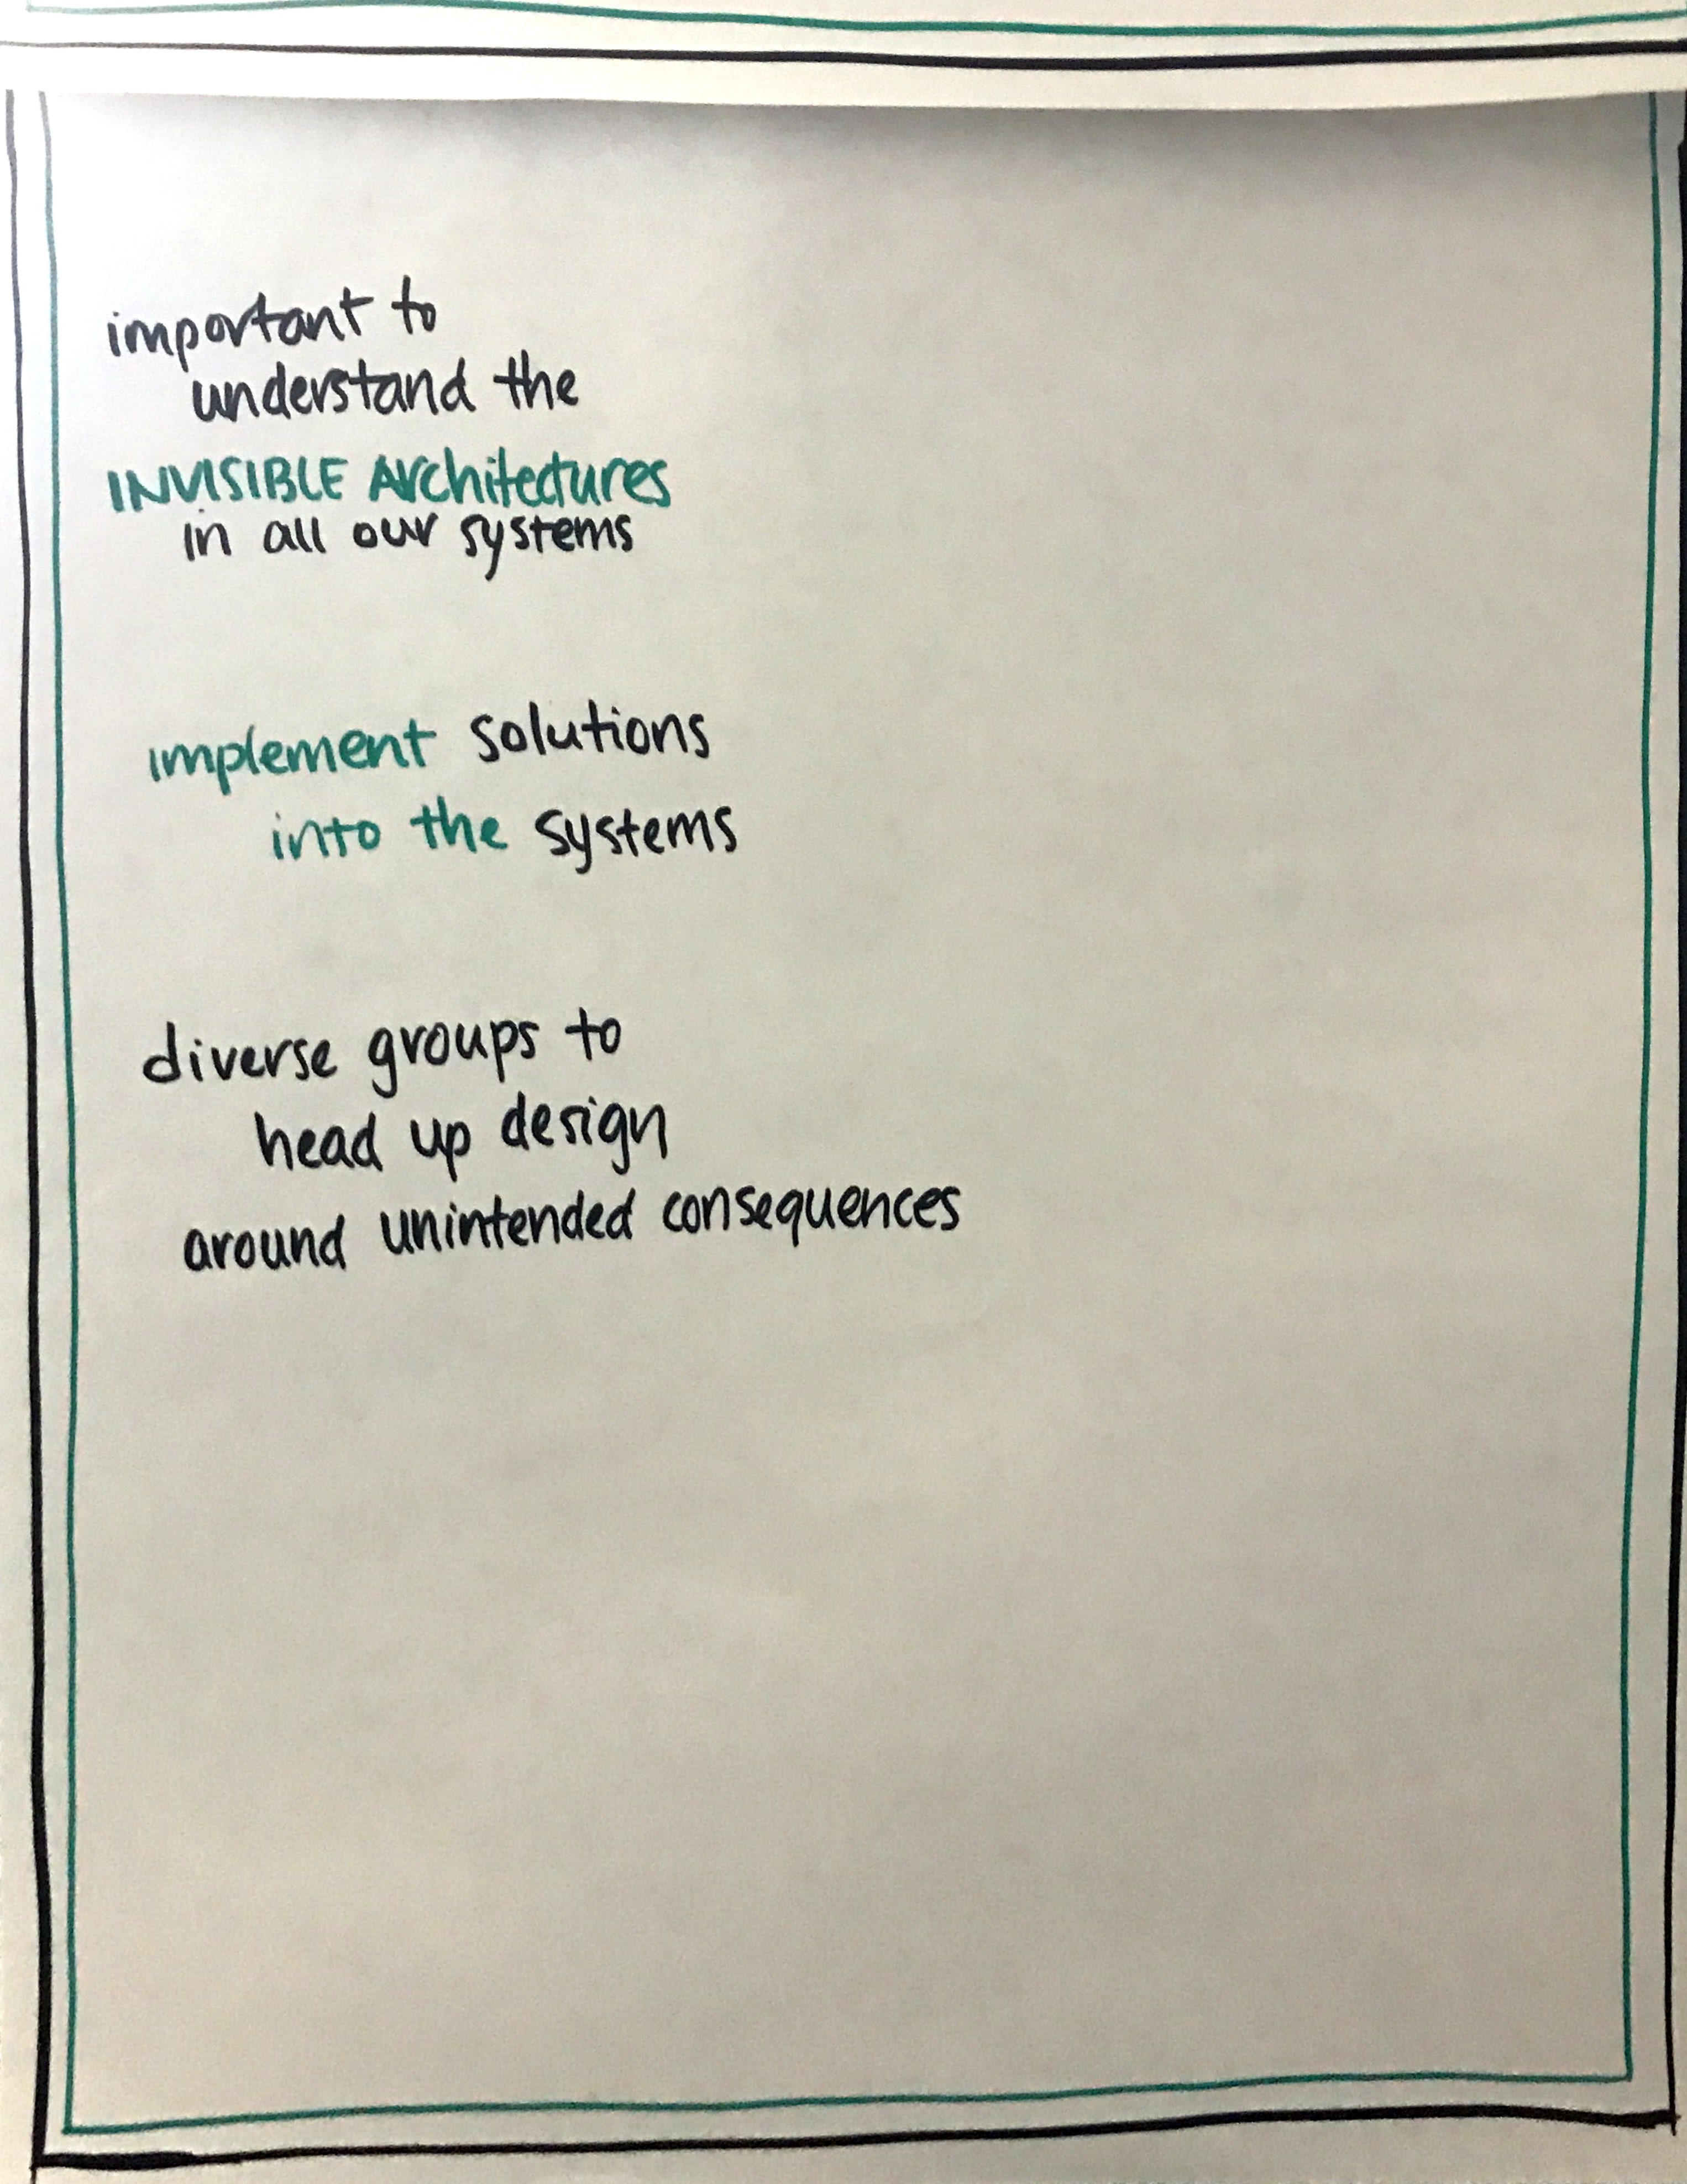 important to
understand the
INVISIBLE Architectures
in all our systems
implement solutions
into the systems
diverse groups to
head up design
around unintended consequences